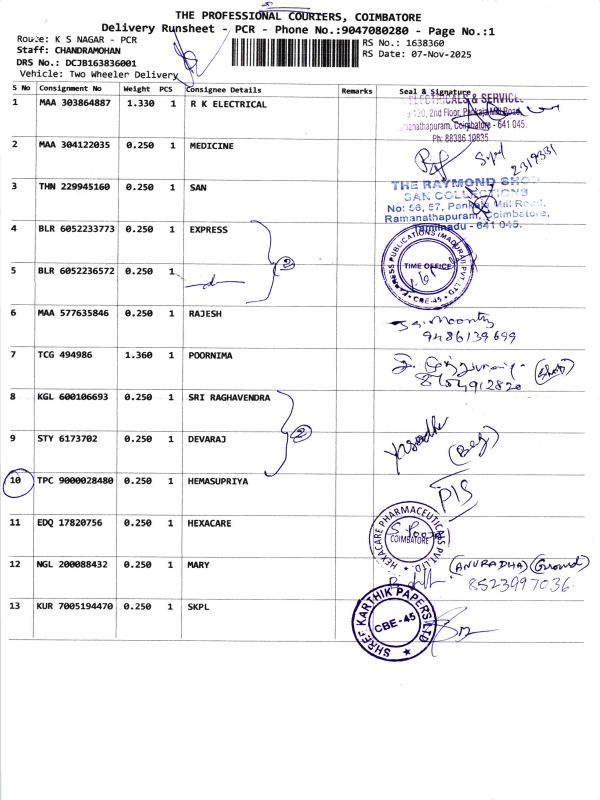 THE PROFESSIONAL COURIERS, COIMBATORE
Delivery Runsheet - PCR - Phone No.:9047080280 - Page No.:1
Route: K S NAGAR - PCR
Staff: CHANDRAMOHAN
DRS No.: DCJB163836001
Vehicle: Two Wheeler Delivery
RS No.: 1638360
RS Date: 07-Nov-2025
S No Consignment No Weight PCS Consignee Details Remarks Seal & Signature
1 MAA 303864887 1.330 1 R K ELECTRICAL
ELECTRICALS & SERVICE
120, 2nd Floor, Pankaja Mill Road,
manathapuram, Coimbatore - 641 045.
Ph: 88386 10835
2 MAA 304122035 0.250 1 MEDICINE
2319331
3 THN 229945160 0.250 1 SAN
THE RAYMOND SHOP
SAN COLLECTIONS
No: 56, 57, Pankaja Mill Road,
Ramanathapuram, Coimbatore,
Tamilnadu - 641 045.
4 BLR 6052233773 0.250 1 EXPRESS
2
EXPRESS PUBLICATIONS (MADURAI) PVT LTD
TIME OFFICE
CBE-45
5 BLR 6052236572 0.250 1
6 MAA 577635846 0.250 1 RAJESH
Moorthy
9486139699
7 TCG 494986 1.360 1 POORNIMA
8454912820
8 KGL 600106693 0.250 1 SRI RAGHAVENDRA
2
9 STY 6173702 0.250 1 DEVARAJ
Yasodha
10 TPC 9000028480 0.250 1 HEMASUPRIYA
PIS
11 EDQ 17820756 0.250 1 HEXACARE
HEXACARE PHARMACEUTICALS PVT LTD
COIMBATORE
12 NGL 200088432 0.250 1 MARY
(ANURADHA) (Ground)
8523997036
13 KUR 7005194470 0.250 1 SKPL
SHREE KARTHIK PAPERS LTD
CBE-45